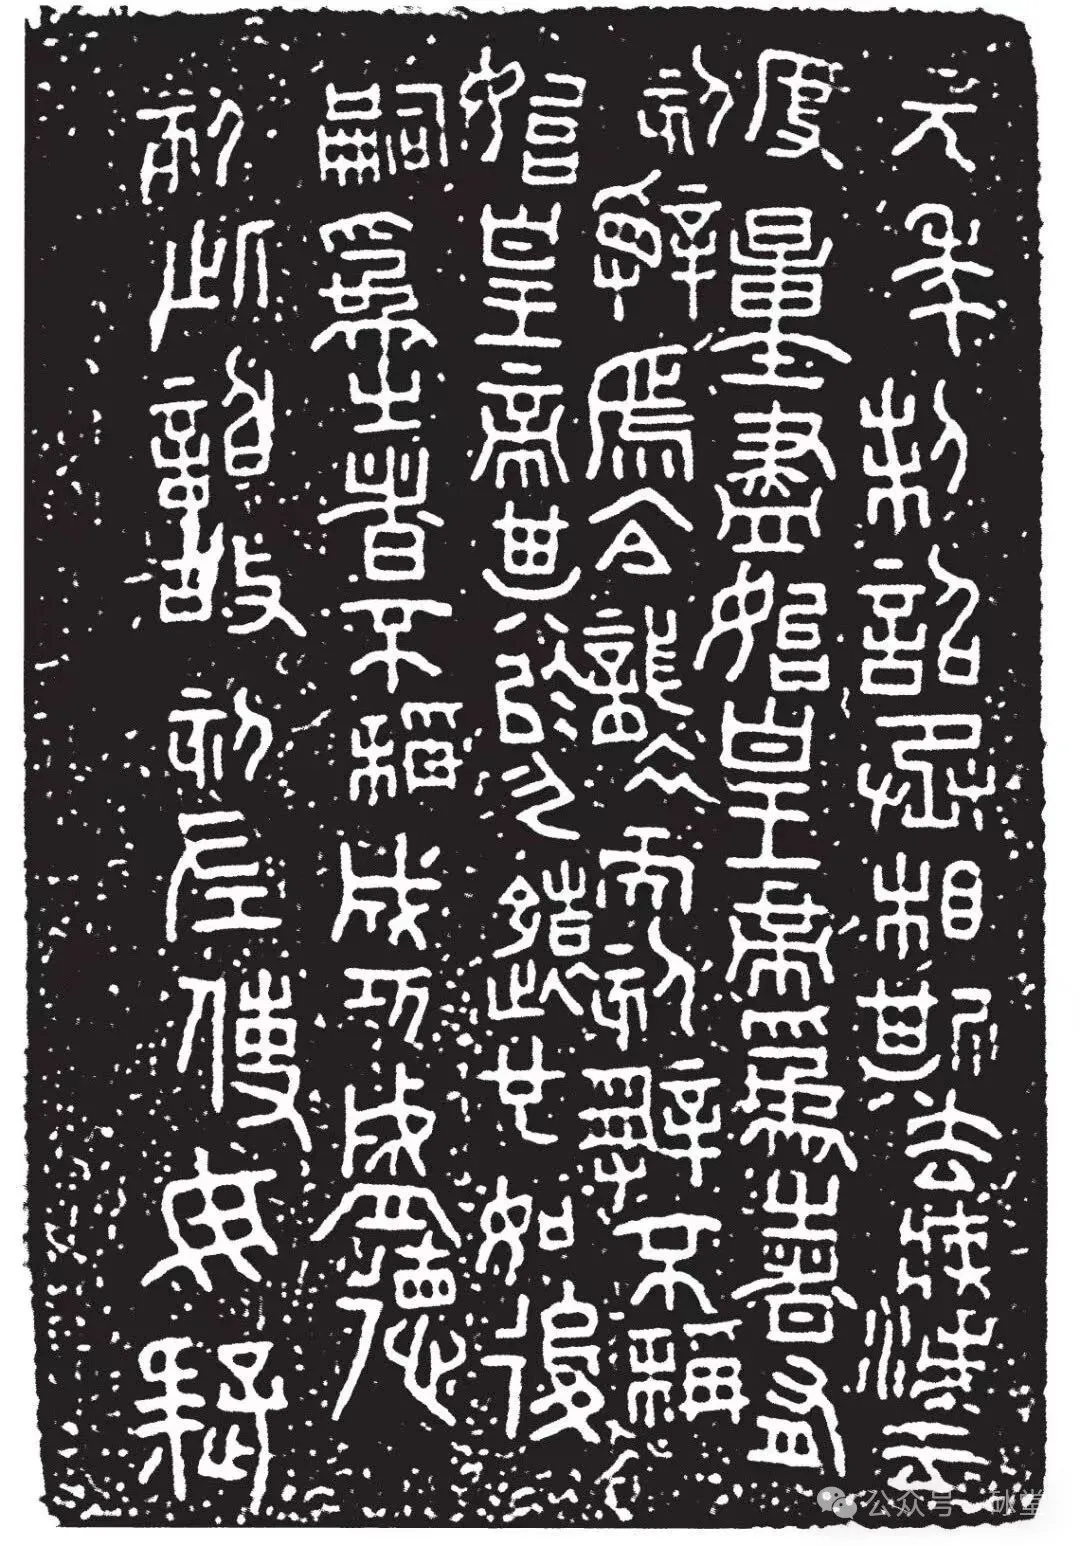 元年制詔丞相斯去疾灋
度量盡始皇帝為之皆有
刻辭焉今襲號而刻辭不稱
始皇帝其於久遠也如後
嗣為之者不稱成功盛德
刻此詔故刻左使毋疑
公众号